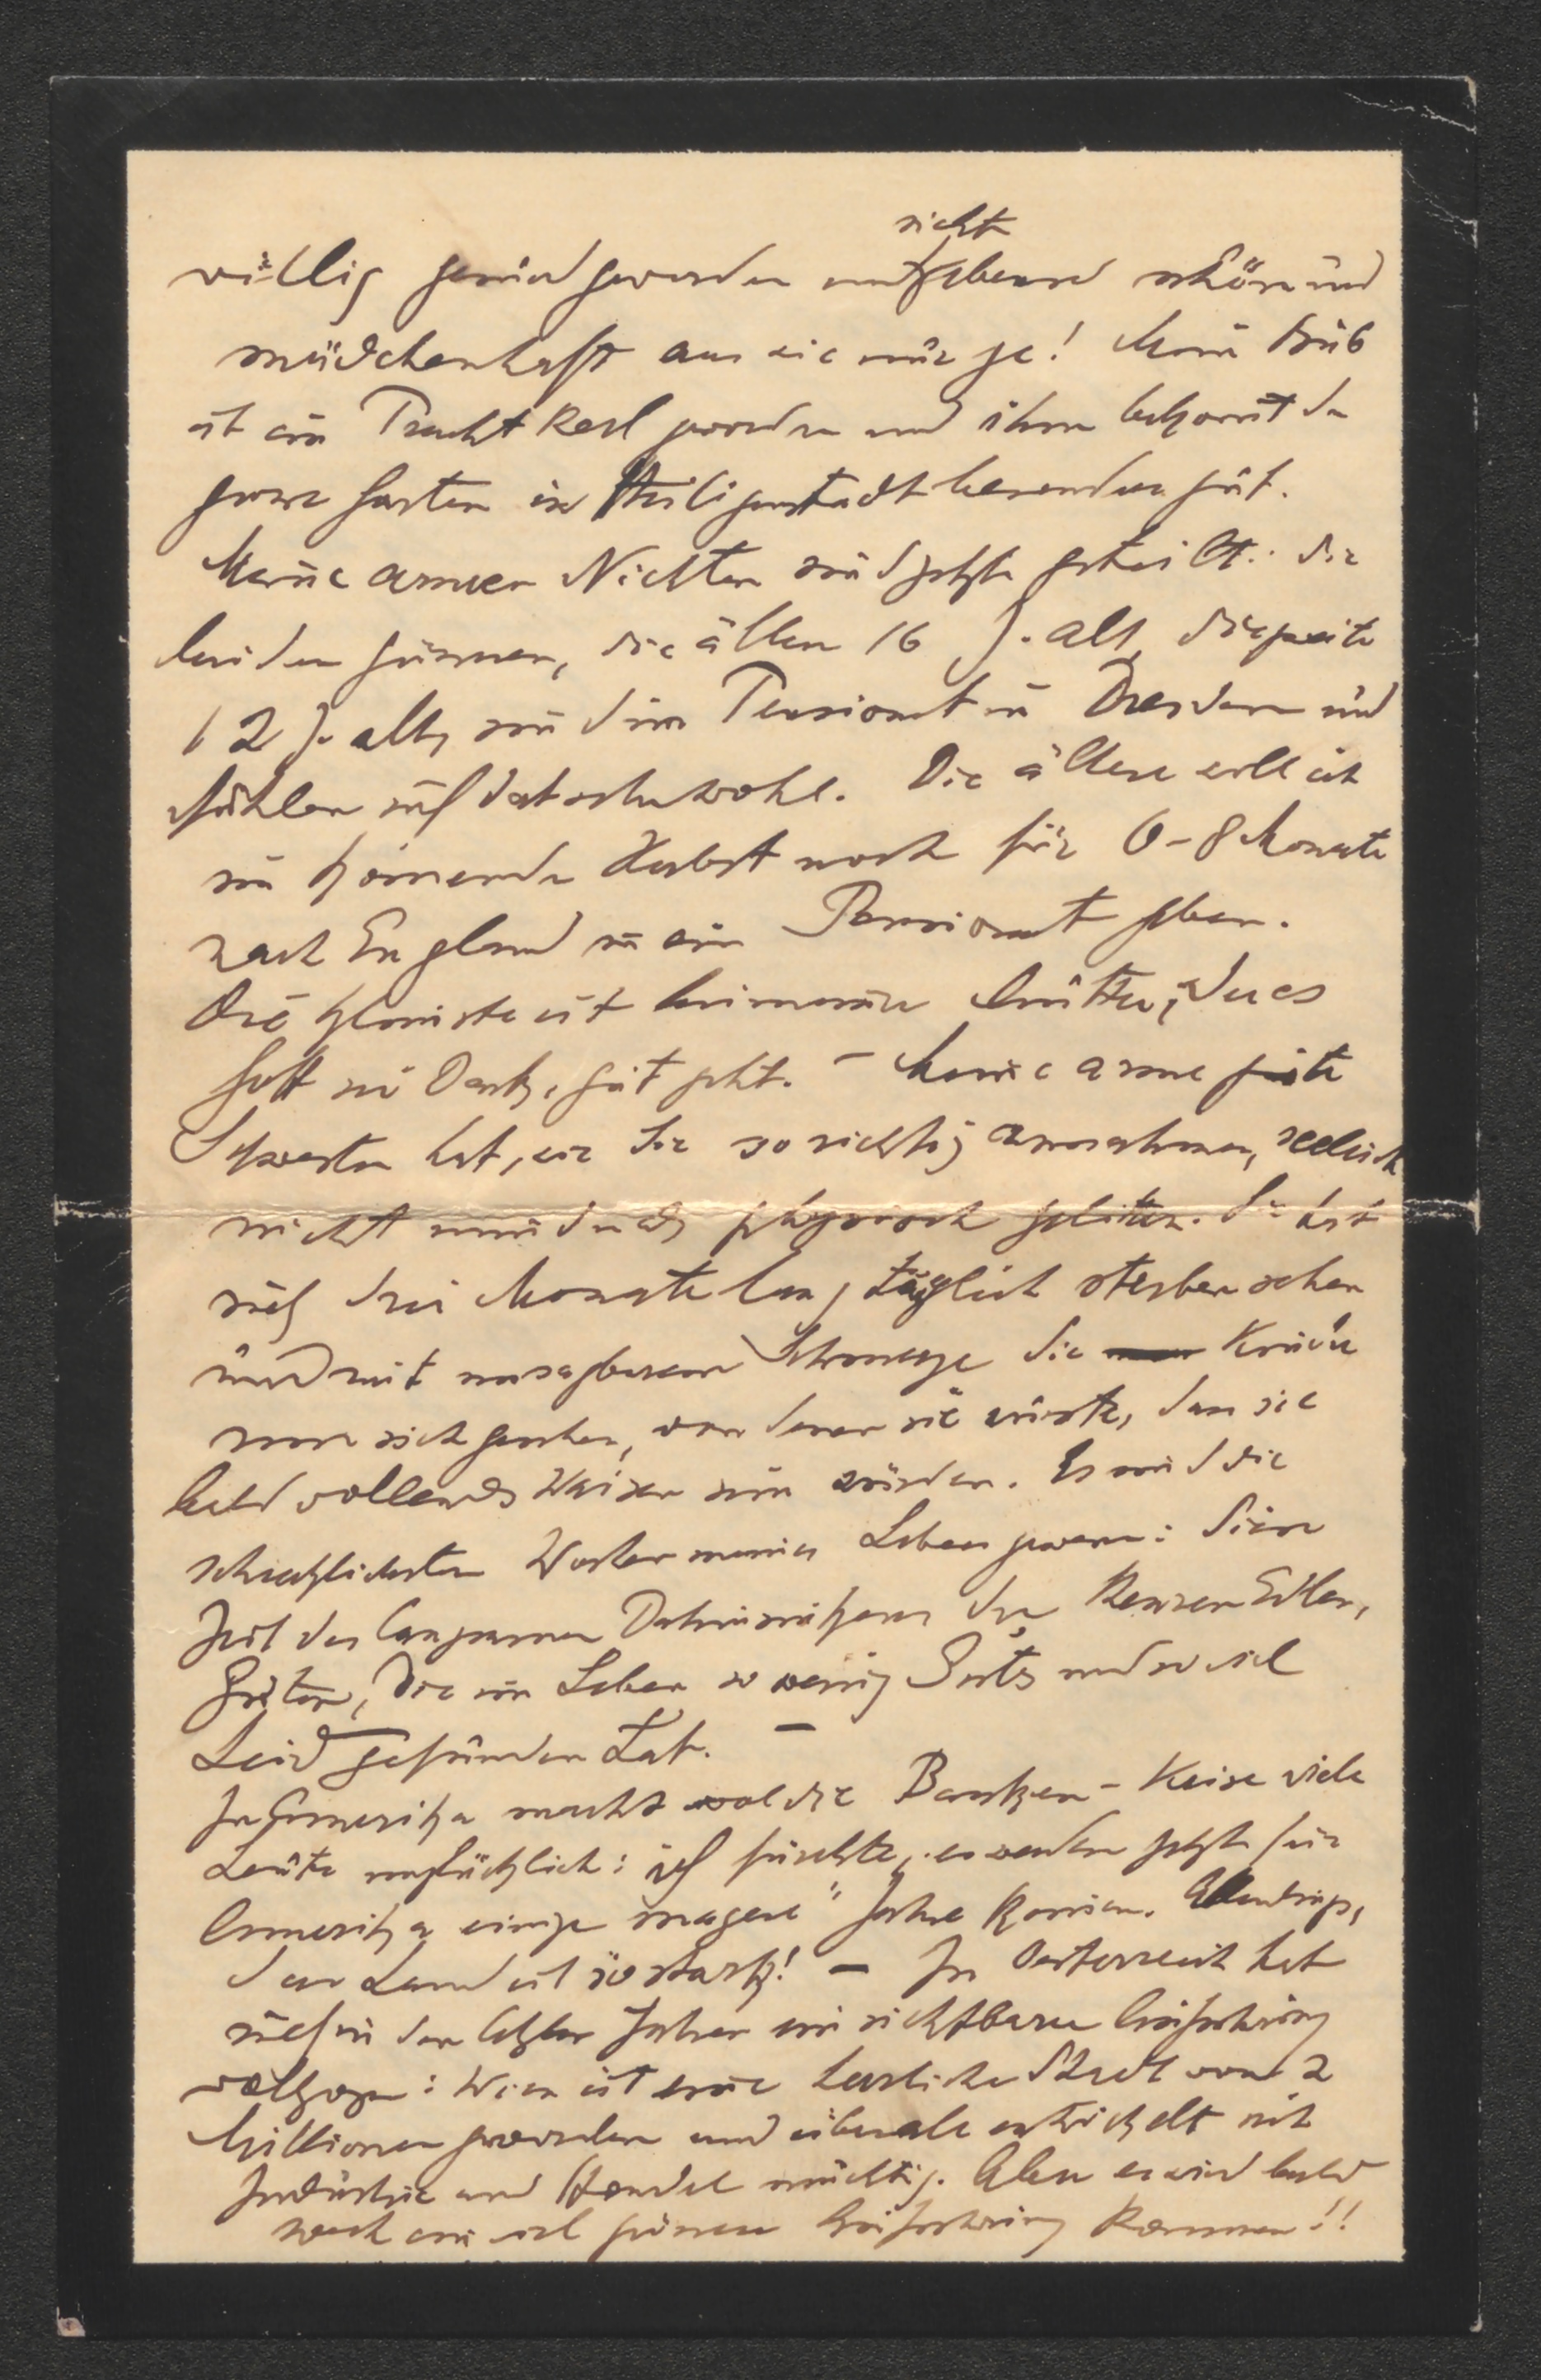 nicht
völlig gesund geworden und sieht ebenso schön und
mädchenhaft aus wie nur je! Mein Bub
ist ein Prachtkerl geworden und ihm bekommt der
grosse Garten in Heiligenstadt besonders gut.
Meine armen Nichten sind jetzt geteilt: die
beiden grösseren, die ältere 16 J. alt, die zweite
12 J. alt, sind im Pensionat in Dresden und
fühlen sich dort sehr wohl. Die ältere will ich
im kommenden Herbst noch für 6-8 Monate
nach England in ein Pensionat geben.
Die kleinste ist bei meiner Mutter, der es
Gott sei Dank, gut geht. – Meine arme gute
Schwester hat, wie Sie so richtig annahmen, seelisch
nicht minder als physisch gelitten. Sie hat
sich drei Monate lang täglich sterben sehen
und mit unsagbarem Schmerze die Kinder
um sich gesehen, von denen sie wusste, dass sie
bald vollends Waisen sein würden. Es sind die
schrecklichsten Wochen meines Lebens gewesen: diese
Zeit des langsamen Dahinsiechens der Edlen,
Guten, die im Leben so wenig Gutes und so viel
Leid gefunden hat. –
In Amerika macht wol die Banken-Krise viele
Leute unglücklich: ich fürchte, es werden jetzt für
Amerika einige "magere" Jahre kommen. Allerdings,
das Land ist so stark! – In Oesterreich hat
sich in den letzten Jahren ein sichtbarer Aufschwung
vollzogen: Wien ist eine herrliche Stadt von 2
Millionen geworden und überall entwickelt sich
Industrie und Handel mächtig. Aber es wird bald
noch ein viel grösserer Aufschwung kommen!!